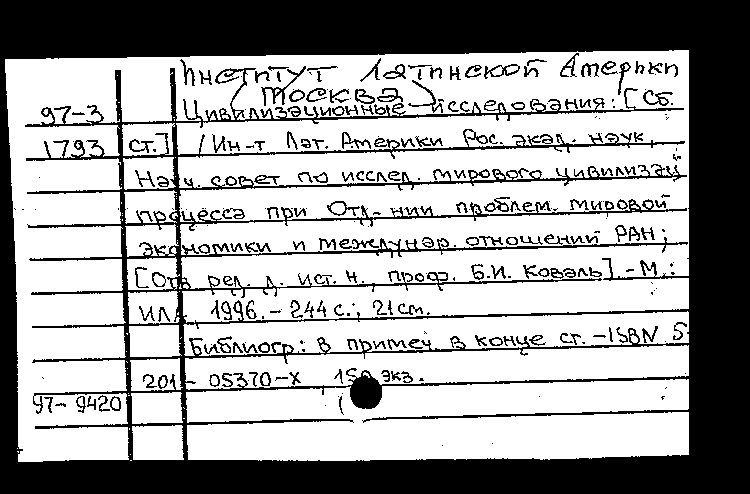 Институт Латинской Америки
(Москва)
97-3 Цивилизационные исследования: [Сб.
1793 ст.] / Ин-т Лат. Америки Рос. акад. наук,
Науч. совет по исслед. мирового цивилизац.
процесса при Отд-нии проблем мировой
экономики и междунар. отношений РАН;
[Отв. ред. д. ист. н., проф. Б.И. Коваль]. - М.:
ИЛА, 1996. - 244 с.; 21 см.
Библиогр: в примеч. в конце ст. - ISBN 5-
201-05370-X, 150 экз.
97-9420